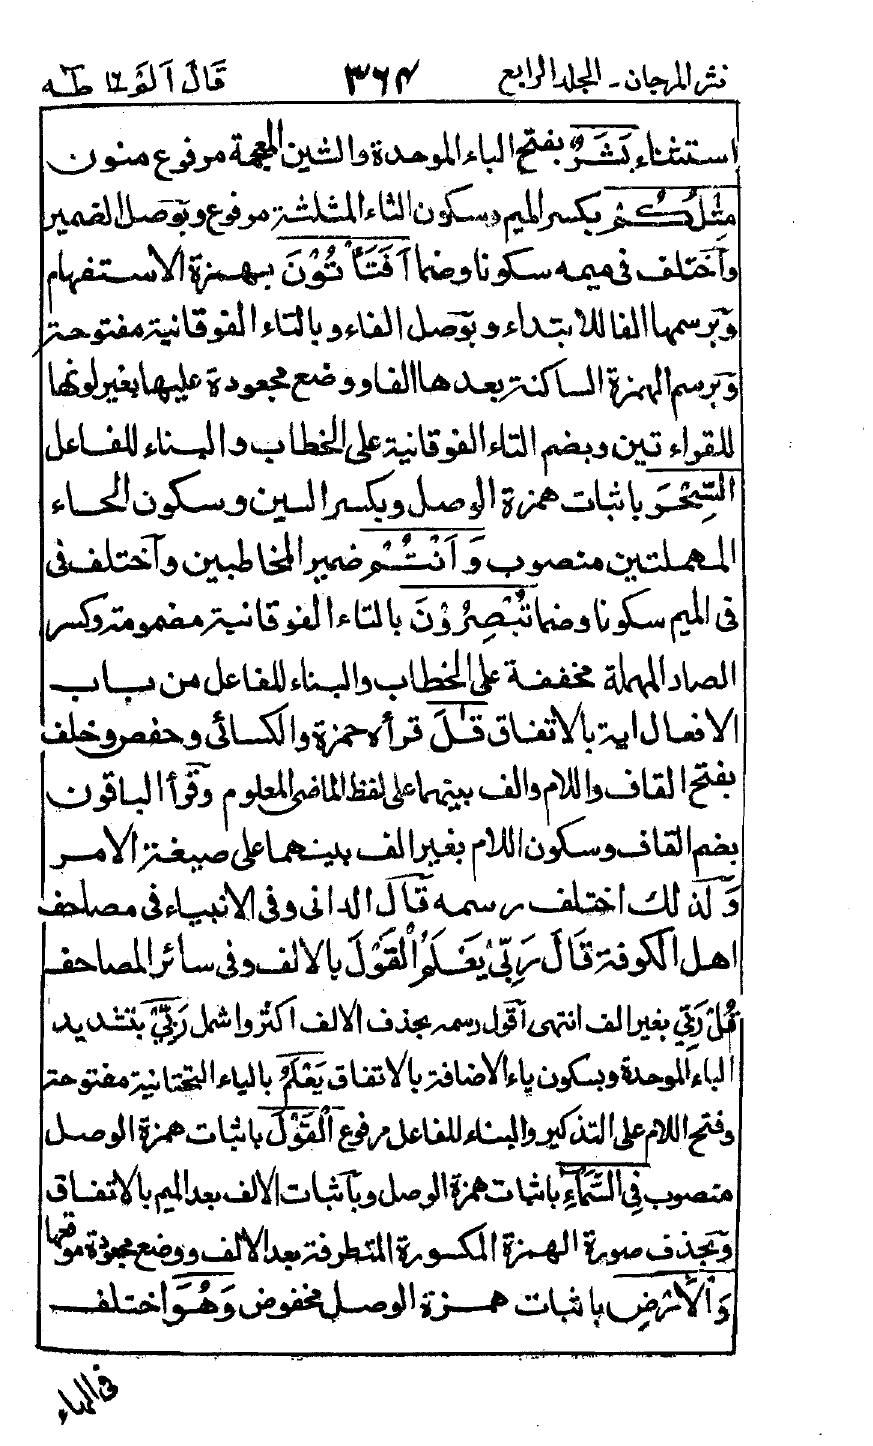 نثر المرجان - المجلد الرابع ٣٦٤ قال الم ١٦ طـه
استثناء بَشَرٌ بفتح الباء الموحدة والشين المعجمة مرفوع منون
مِثْلُكُمْ بكسر الميم وسكون الثاء المثلثة مرفوع وبوصل الضمير
واختلف في ميمه سكونا وضما اَفَتَأْتُوْنَ بهمزة الاستفهام
وبرسمها الفا للابتداء وبوصل الفاء وبالتاء الفوقانية مفتوحة
وبرسم الهمزة الساكنة بعدها الفا ووضع مجعودة عليها بغير لونها
للقراءتين وبضم التاء الفوقانية على الخطاب والبناء للفاعل
السِّحْرَ باثبات همزة الوصل وبكسر السين وسكون الحاء
المهملتين منصوب وَاَنْتُمْ ضمير المخاطبين واختلف في
في الميم سكونا وضما تُبْصِرُوْنَ بالتاء الفوقانية مضمومة وكسر
الصاد المهملة مخففة على الخطاب والبناء للفاعل من باب
الافعال اية بالاتفاق قٰلَ قرأه حمزة والكسائى وحفص وخلف
بفتح القاف واللام والف بينهما على لفظ الماضى المعلوم وقرأ الباقون
بضم القاف وسكون اللام بغير الف بينهما على صيغة الامر
وكذلك اختلف رسمه قال الدانى وفى الانبياء فى مصاحف
اهل الكوفة قَالَ رَبِّىْ يَعْلَمُ الْقَوْلَ بالالف وفى سائر المصاحف
قُلْ رَبِّى بغير الف انتهى اقول رسمه بحذف الالف اكثر واشمل رَبِّىْ بتشديد
الباء الموحدة وبسكون ياء الاضافة بالاتفاق يَعْلَمُ بالياء التحتانية مفتوحة
وفتح اللام على التذكير والبناء للفاعل مرفوع الْقَوْلَ باثبات همزة الوصل
منصوب فِى السَّمَآءِ باثبات همزة الوصل وباثبات الالف بعد الميم بالاتفاق
وبحذف صورة الهمزة المكسورة المتطرفة بعد الالف ووضع مجعودة موقعها
وَالْاَرْضِ باثبات همزة الوصل مخفوض وَهُوَ اختلف
فى الهاء